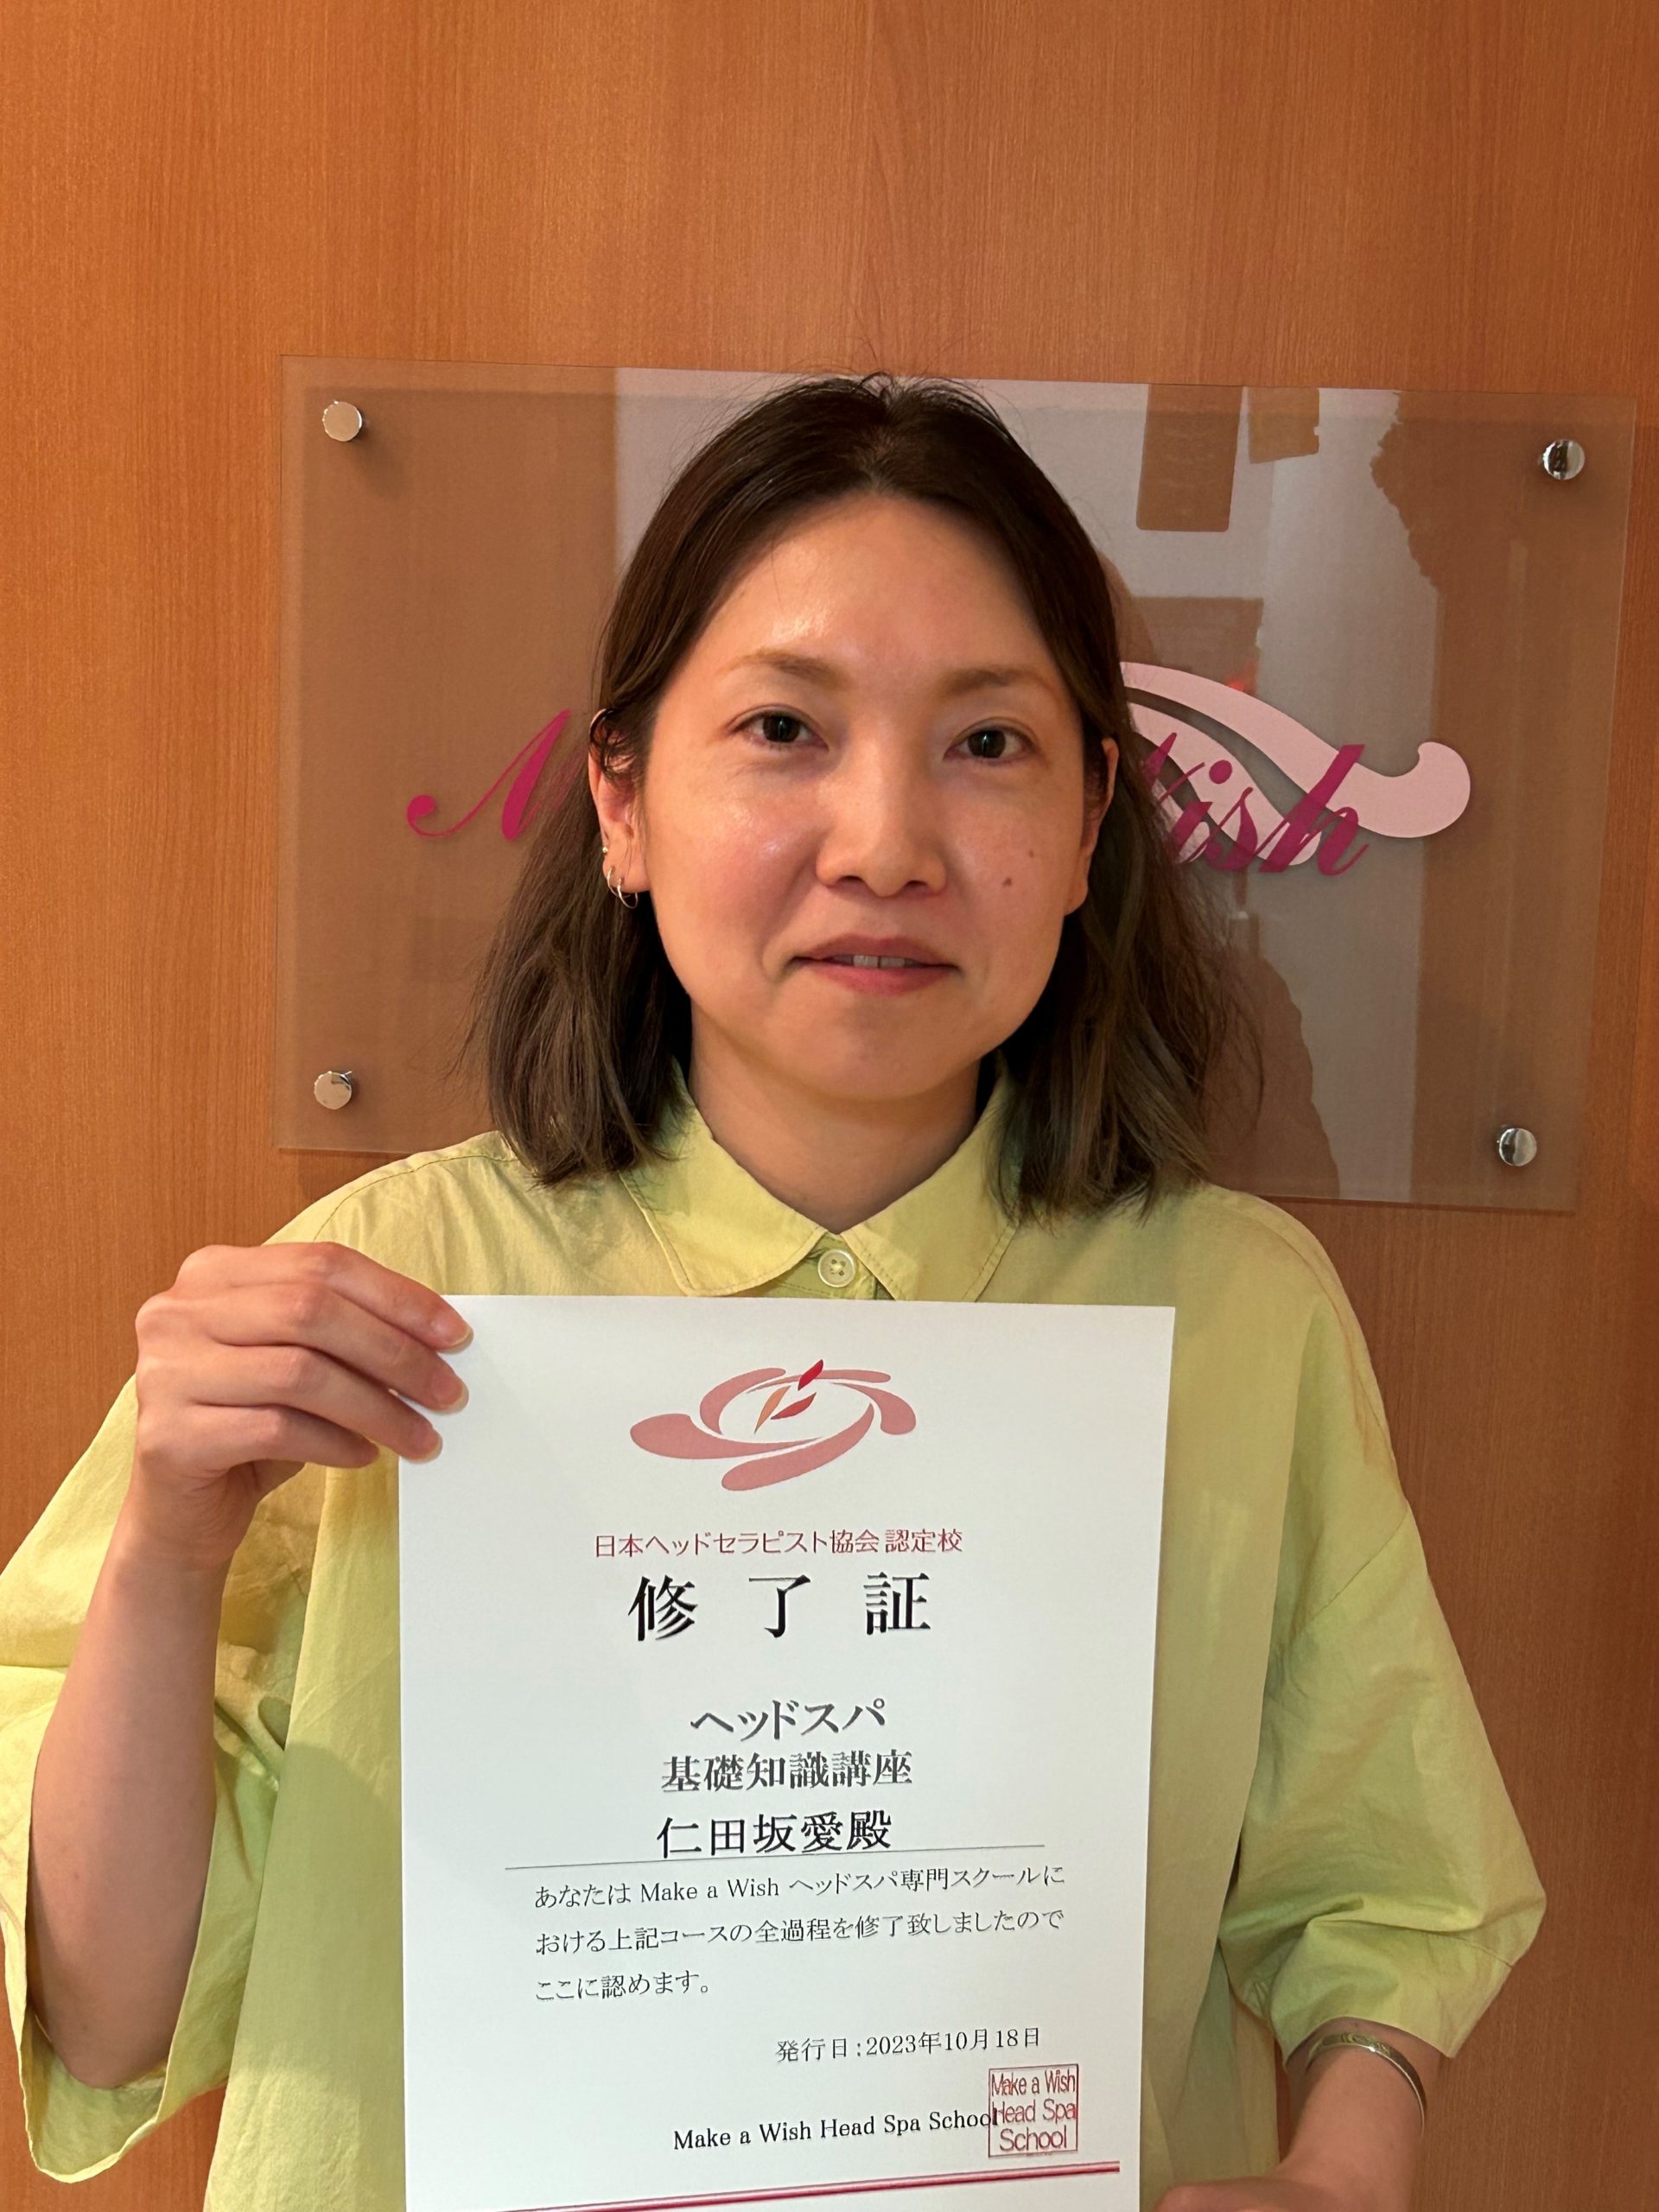 ish
日本ヘッドセラピスト協会 認定校
修了証
ヘッドスパ
基礎知識講座
仁田坂愛殿
あなたは Make a Wish ヘッドスパ専門スクールに
おける上記コースの全過程を修了致しましたので
ここに認めます。
発行日:2023年10月18日
Make a Wish Head Spa School
Make a Wish
Head Spa
School